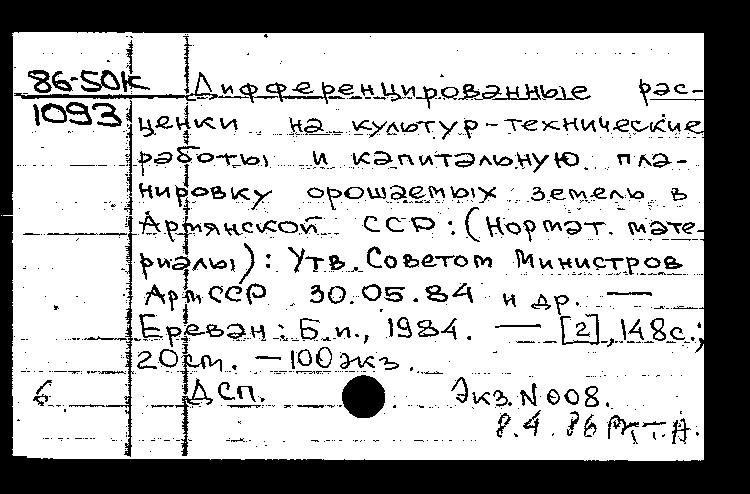 86-50К Дифференцированные рас-
1093 ценки на культур-технические
работы и капитальную пла-
нировку орошаемых земель в
Армянской ССР: (Нормат. мате-
риалы): Утв. Советом Министров
АрмССР 30.05.84 и др. —
Ереван: Б.и., 1984. — [2], 148с.;
20см. — 100экз.
6 ДСП. Экз. N 008.
8.4.86 РКТ.А.